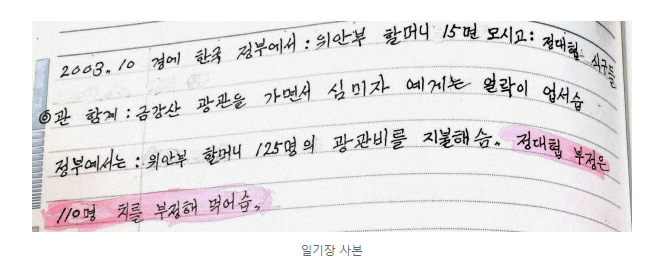 2003.10 경에 한국 정부에서 : 위안부 할머니 15명 모시고 : 정대협 식구들
관 함계 : 금강산 광관을 가면서 심미자 에게는 연락이 업서습
정부에서는 : 위안부 할머니 125명의 광관비를 지불해슴. 정대협 부정은
110명 치를 부정해 먹어습.
일기장 사본